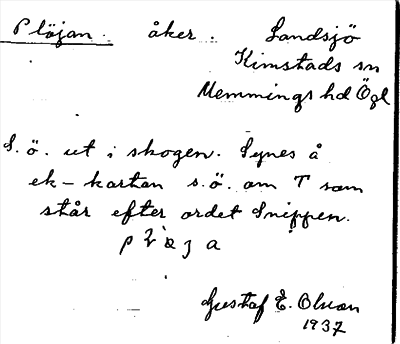 Plöjan. åker. Landsjö
Kimstads sn
Memmings hd Ögl
S.ö. ut i skogen. Synes å
ek-kartan s.ö. om T som
står efter ordet Snippen.
Gustaf E. Olson
1937